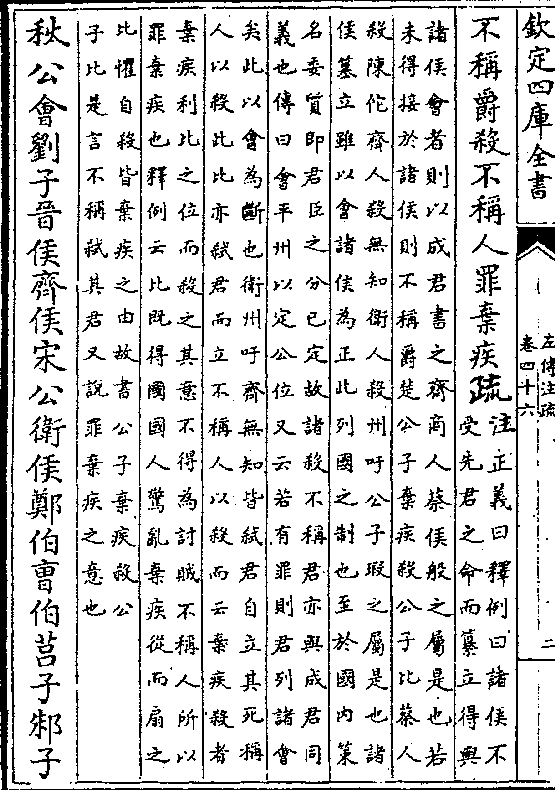 欽定四庫全書
左傳注疏
卷四十六
二
不稱爵殺不稱人罪棄疾疏
注正義曰釋例曰諸侯不
受先君之命而篡立得與
諸侯會者則以成君書之齊商人蔡侯般之屬是也若
未得接於諸侯則不稱爵楚公子棄疾殺公子比蔡人
殺陳佗齊人殺無知衛人殺州吁公子瑕之屬是也諸
侯篡立雖以會諸侯為正此列國之制也至於國内策
名委質即君臣之分已定故諸殺不稱君亦與成君同
義也傳曰會平州以定公位又云若有罪則君列諸會
矣此以會為斷也衛州吁齊無知皆弑君自立其死稱
人以殺比比亦弑君而立不稱人以殺而云棄疾殺者
棄疾利比之位而殺之其意不得為討賊不稱人所以
罪棄疾也釋例云比既得國國人驚亂棄疾從而扇之
比懼自殺皆棄疾之由故書公子棄疾殺公
子比是言不稱弑其君又說罪棄疾之意也
秋公會劉子晉侯齊侯宋公衛侯鄭伯曹伯莒子邾子